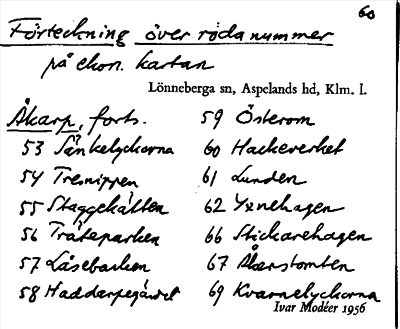 60
Förteckning över röda nummer
på ekon. kartan
Lönneberga sn, Aspelands hd, Klm. l.
Åkarp, forts.
53 Sänkelyckorna
54 Tresnippen
55 Staggekätten
56 Träteparken
57 Låsebacken
58 Haddarpegärdet
59 Österom
60 Hackeverket
61 Lunden
62 Yxnehagen
66 Stickarehagen
67 Åkerstomten
69 Kvarnelyckorna
Ivar Modéer 1956